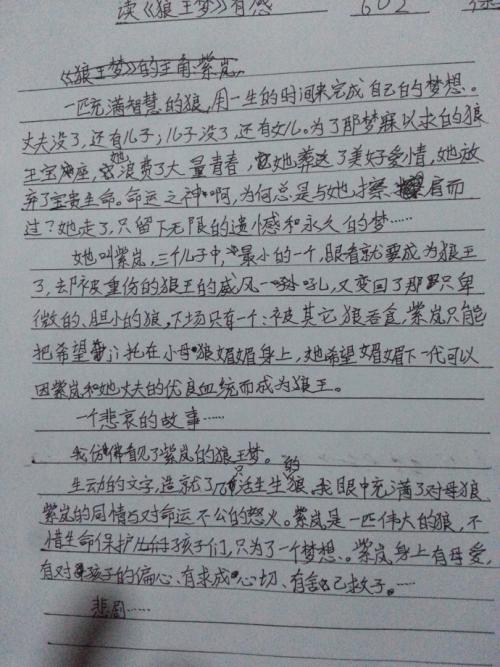 读《狼王梦》有感 602
《狼王梦》的主角:紫岚
一匹充满智慧的狼,用一生的时间来完成自己的梦想。
丈夫没了,还有儿子;儿子没了,还有女儿。为了那梦寐以求的狼
王宝座,她浪费了大量青春,她葬送了美好爱情,她放
弃了宝贵生命。命运之神啊,为何总是与她擦肩而
过?她走了,只留下无限的遗憾和永久的梦……
她叫紫岚,三个儿子中,最小的一个,眼看就要成为狼王
了,却被重伤的狼王的威风一吼,又变回了那只卑
微的、胆小的狼,下场只有一个:被其它狼吞食,紫岚只能
把希望寄托在小母狼媚媚身上,她希望媚媚下一代可以
因紫岚和她丈夫的优良血统而成为狼王。
一个悲哀的故事……
我仿佛看见了紫岚的狼王梦。
生动的文字,造就了一只活生生的狼,我眼中充满了对母狼
紫岚的同情与对命运不公的怒火。紫岚是一匹伟大的狼,不
惜生命保护孩子们,只为了一个梦想。紫岚身上有母爱,
有对孩子的偏心、有求成心切、有舍己救子。……
悲剧……